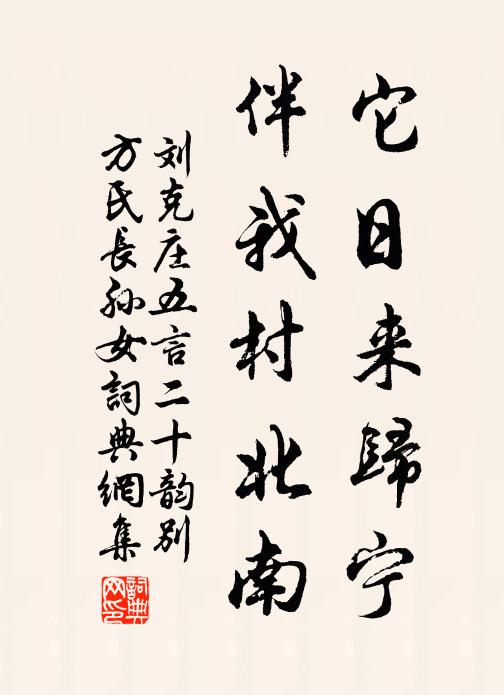 它日来歸宁
伴我村北南
刘克庄五言二十韵别
方氏長孙女詞典網集
詞典网印